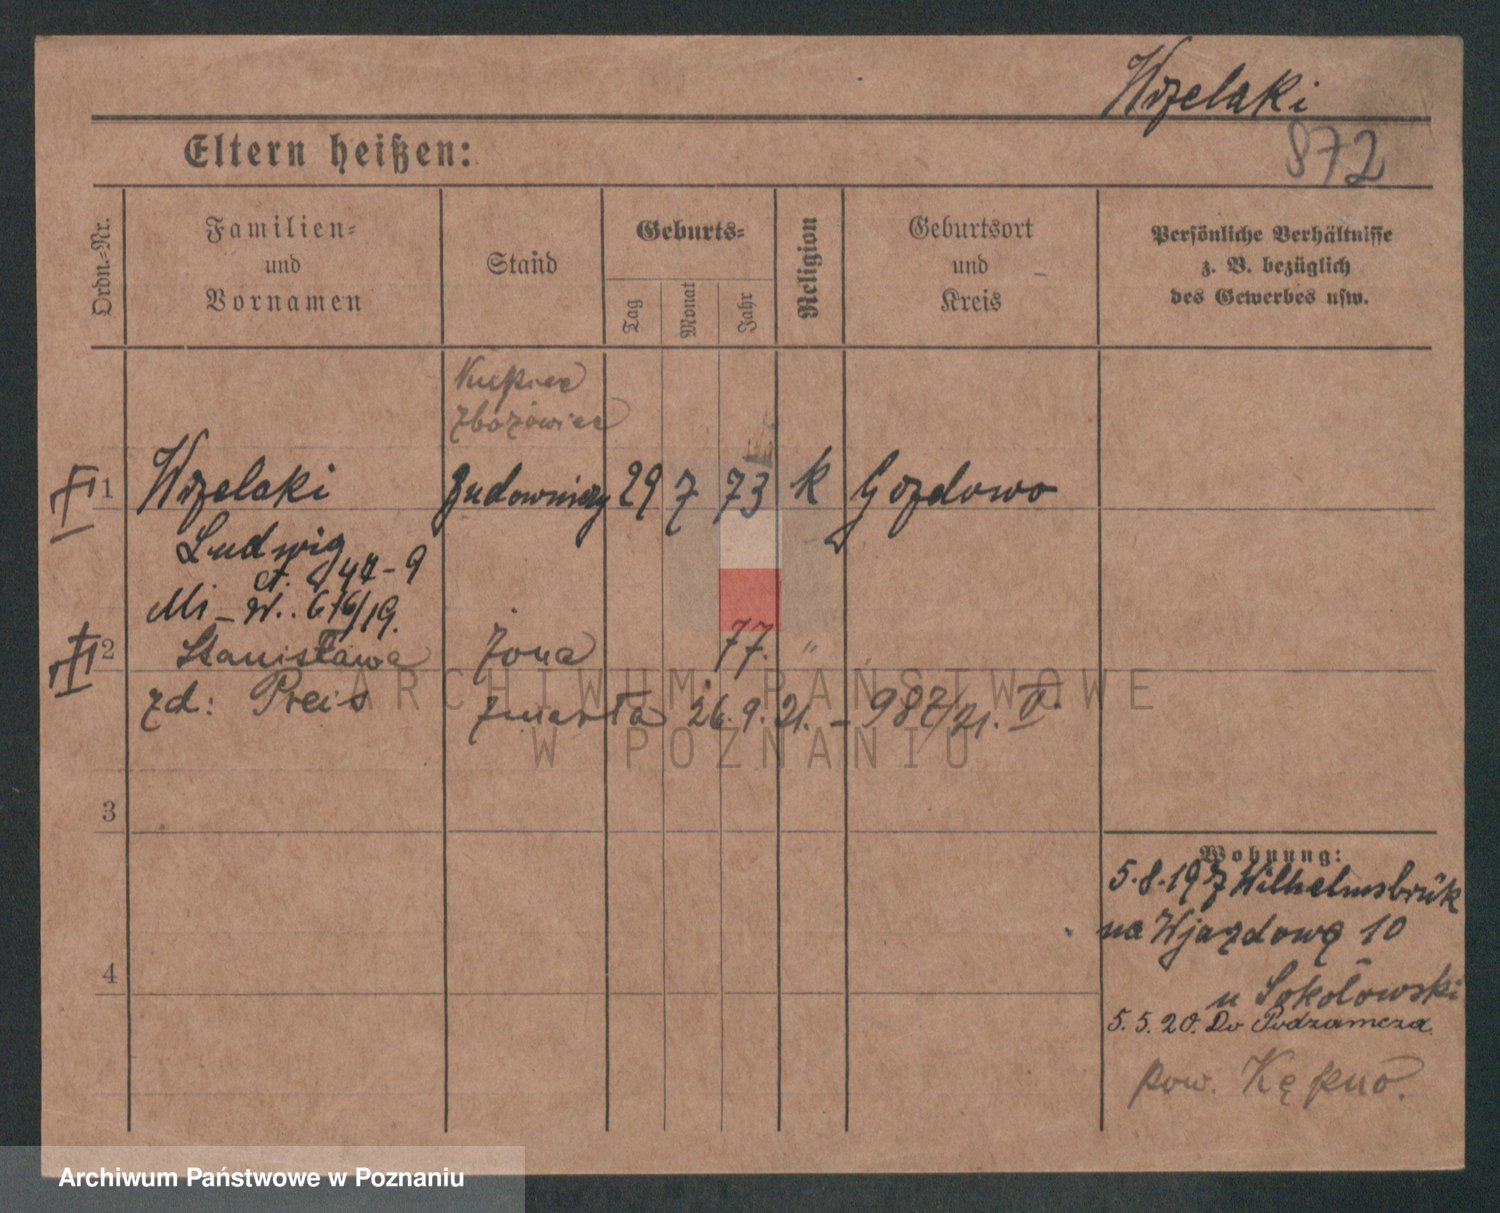 Wrzelaki
872
Eltern heißen:
Ordn.-Nr.
Familien-
und
Vornamen
Stand
Geburts-
Tag
Monat
Jahr
Religion
Geburtsort
und
Kreis
Persönliche Verhältnisse
z. B. bezüglich
des Gewerbes usw.
Kupiec
zbożowiec
1 Wrzelaki Budowniczy 29 7 73 k Gozdowo
Ludwig
Mi - W. 6/6/19.
2 Stanisława żona 77. "
zd: Preis zmarła 26. 9. 21. - 987/21. V.
3
4
Wohnung:
5.8.197 Wilhelmsbrük
na Wjazdową 10
u Sokołowski
5.5.20. Do Podzamcza
pow. Kępno.
ARCHIWUM PAŃSTWOWE
W POZNANIU
Archiwum Państwowe w Poznaniu